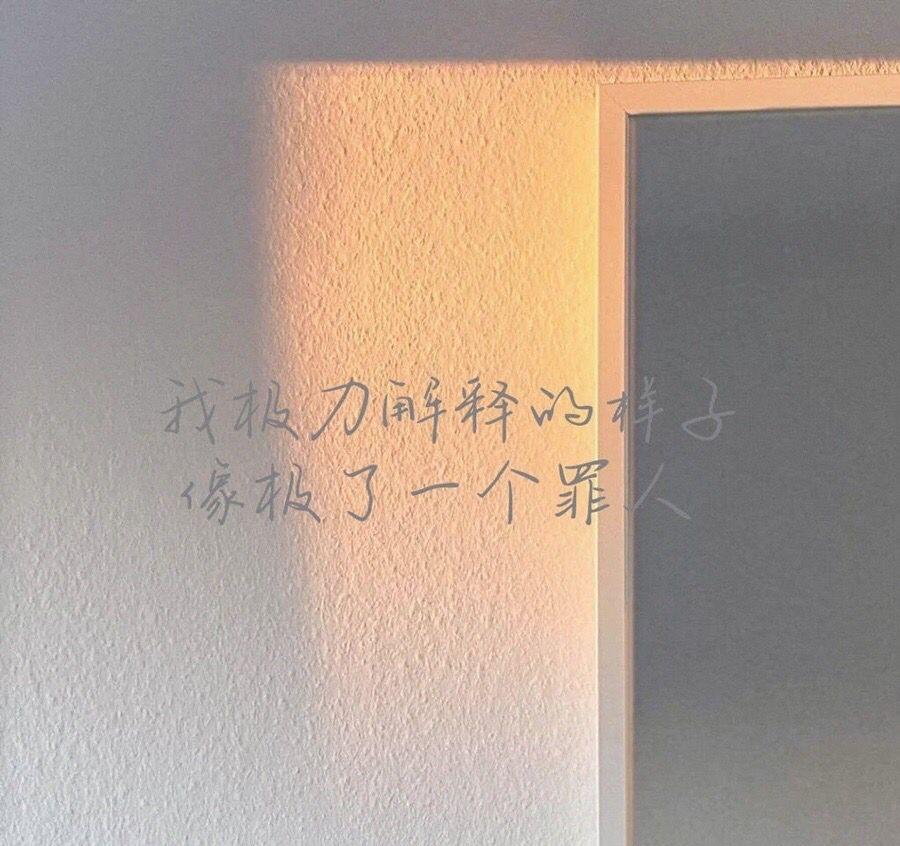 我极力解释的样子
像极了一个罪人